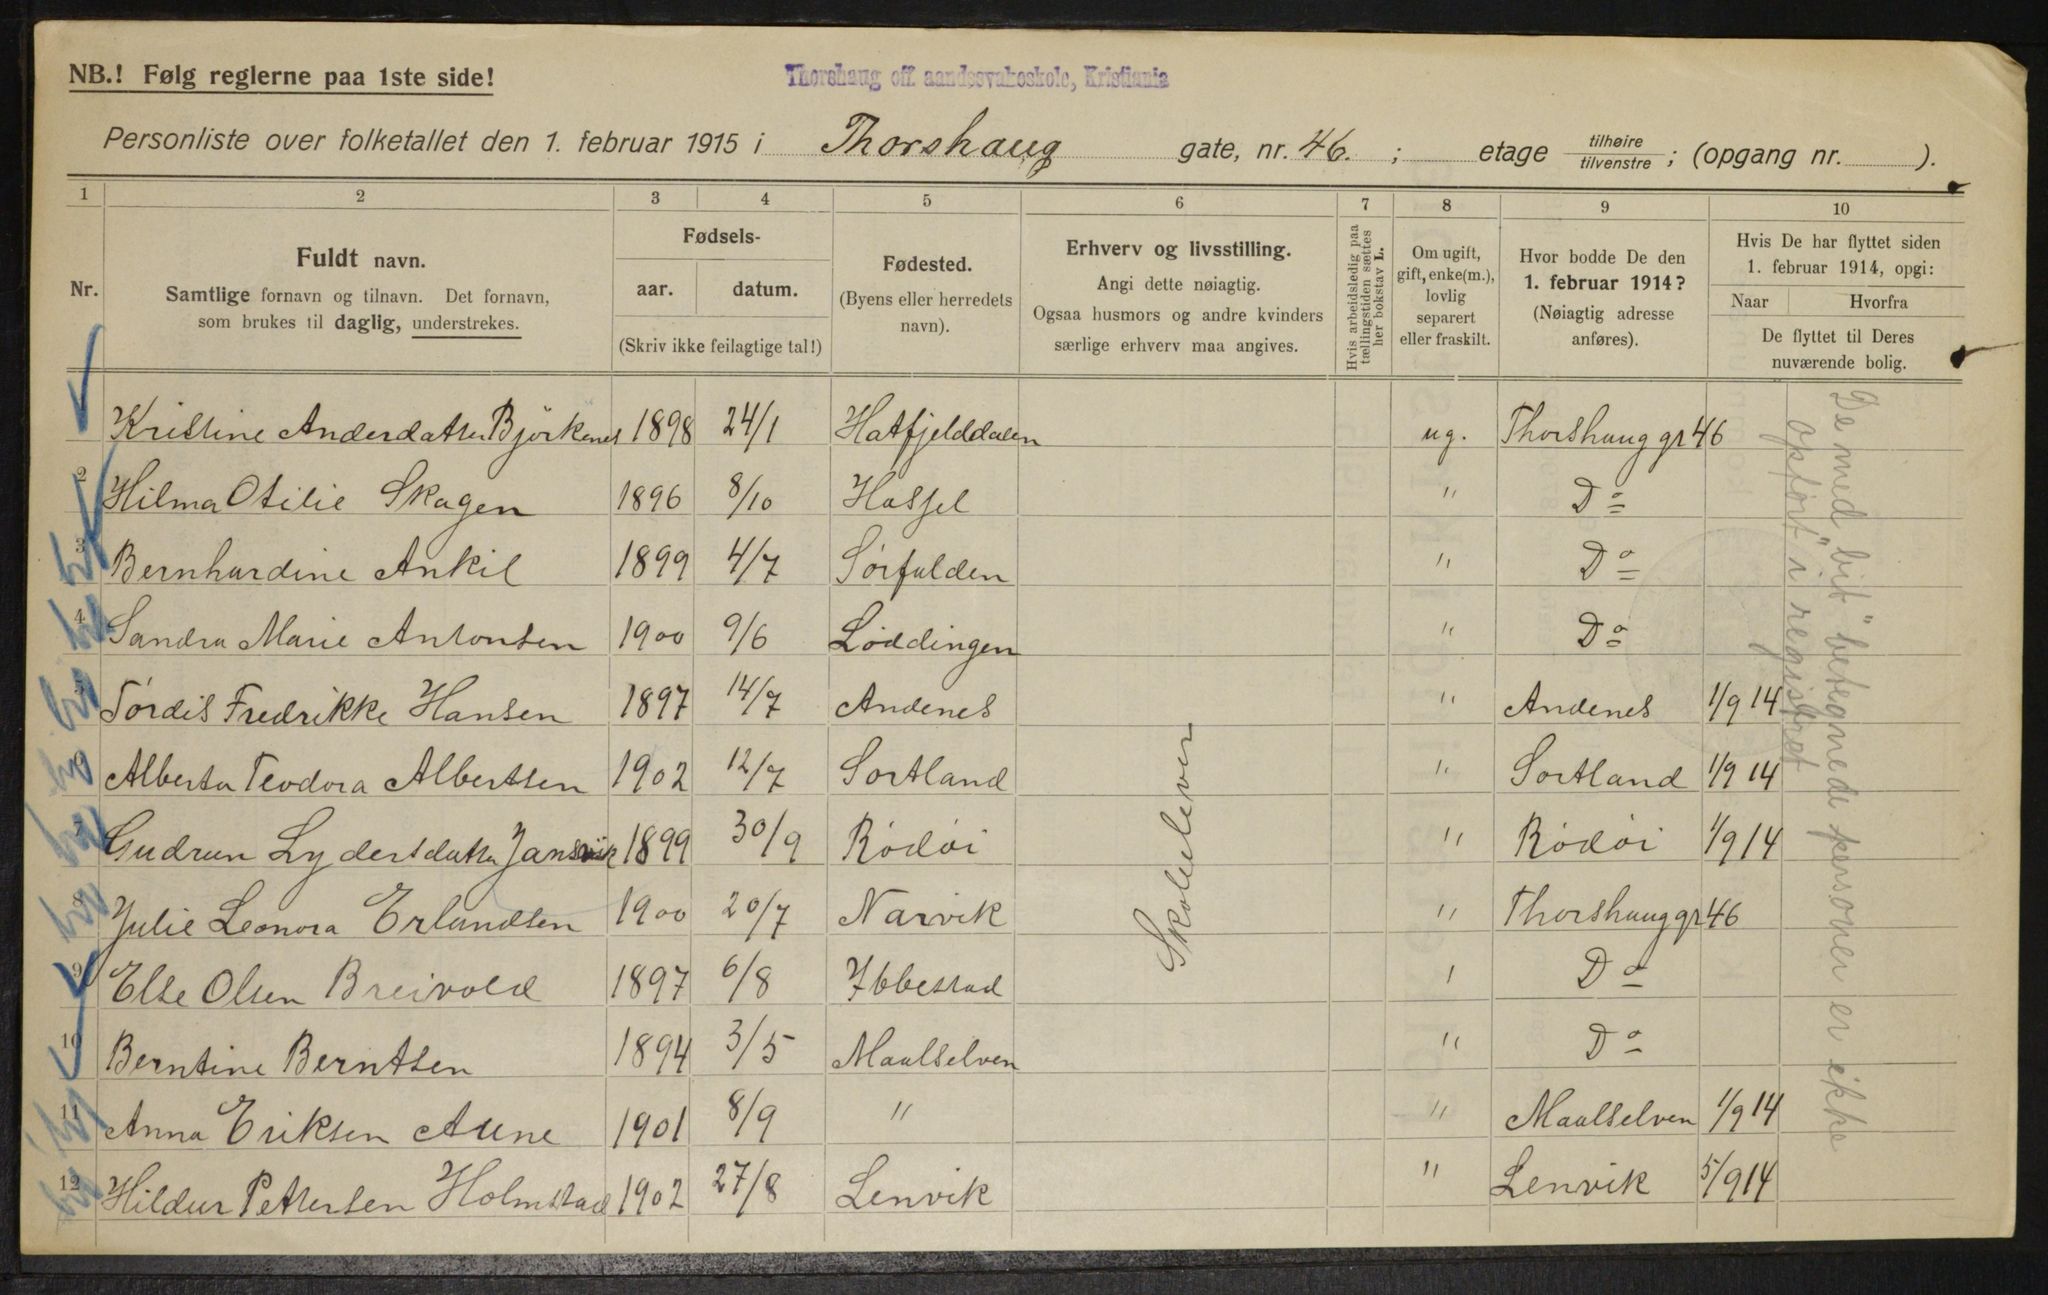 NB.! Følg reglerne paa 1ste side!
Thorshaug off. aandssvakeskole, Kristiania
Personliste over folketallet den 1. februar 1915 i Thorshaug gate, nr. 46. ; etage tilhøire/tilvenstre ; (opgang nr. ).
1 2 3 4 5 6 7 8 9 10
Nr.
Fuldt navn.
Samtlige fornavn og tilnavn. Det fornavn,
som brukes til daglig, understrekes.
Fødsels-
aar. datum.
(Skriv ikke feilagtige tal!)
Fødested.
(Byens eller herredets
navn).
Erhverv og livsstilling.
Angi dette nøiagtig.
Ogsaa husmors og andre kvinders
særlige erhverv maa angives.
Hvis arbeidsledig paa
tællingstiden sættes
her bokstav L.
Om ugift,
gift, enke(m.),
lovlig
separert
eller fraskilt.
Hvor bodde De den
1. februar 1914?
(Nøiagtig adresse
anføres).
Hvis De har flyttet siden
1. februar 1914, opgi:
Naar Hvorfra
De flyttet til Deres
nuværende bolig.
Kristine Andersdatter Björkenes 1898 24/1 Hatfjelddalen ug. Thorshauggt 46
2 Hilma Otilie Skagen 1896 8/10 Hassel " Do
3 Bernhardine Ankil 1899 4/7 Sørfolden " Do
4 Sandra Marie Antonsen 1900 9/6 Løddingen " Do
5 Tórdis Fredrikke Hansen 1897 14/7 Andenes " Andenes 1/9 14
6 Alberta Teodora Albertsen 1902 12/7 Sortland " Sortland 1/9 14
7 Gudrun Lydersdatter Jansvik 1899 30/9 Rödöi " Rödöi 1/9 14
8 Julie Leonora Erlandsen 1900 20/7 Narvik " Thorshauggt 46
9 Else Olsen Breivold 1897 6/8 Ibbestad " Do
10 Berntine Berntsen 1894 3/5 Maalselven " Do
11 Anna Eriksen Aune 1901 8/9 " " Maalselven 1/9 14
12 Hildur Pettersen Holmstad 1902 27/8 Lenvik " Lenvik 5/9 14
Skoleelever
De med "bit" betegnede personer er ikke
opført i registret